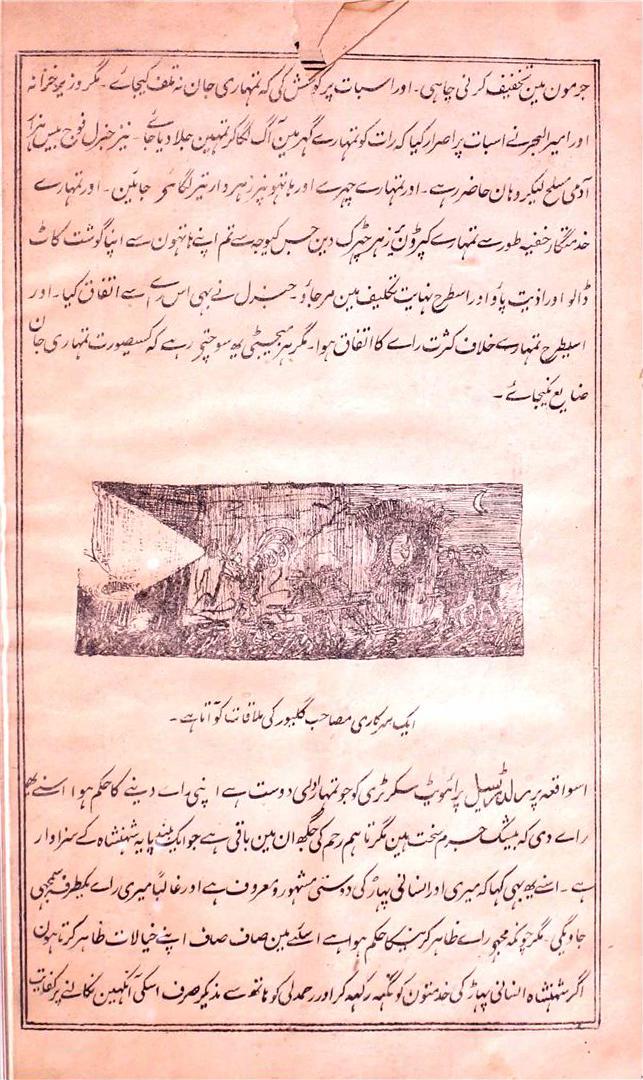 جرمون مین تخفیف کرنی چاہی۔ اور اسبات پر کوشش کی کہ تمہاری جان نہ تلف کیجائے۔ مگر وزیر خزانہ
اور امیر البحر نے اسبات پر اصرار کیا کہ رات کو تمہارے گہر مین آگ لگا کر تمہین جلا دیا جائے۔ نیز جنرل فوج بیس ہزار
آدمی مسلح لیکر وہان حاضر رہے۔ اور تمہارے چہرے اور ہاتہونپر زہر دار تیر لگائے جائین۔ اور تمہارے
خدمتگار خفیہ طور سے تمہارے کپڑونپر زہر چہڑک دین جس کیوجہ سے تم اپنے ہاتہون سے اپنا گوشت کاٹ
ڈالو اور اذیت پاؤ اور اسطرح نہایت تکلیف مین مر جاؤ۔ جنرل نے بہی اس رائے سے اتفاق کیا۔ اور
اسیطرح تمہارے خلاف کثرت رائے کا اتفاق ہوا۔ مگر ہز میجسٹی یہ سوچتے رہے کہ کسیصورت تمہاری جان
ضایع نکیجائے۔
ایک سرکاری مصاحب گلیور کی ملاقات کو آتا ہے۔
اسواقعہ پر ریلڈریسل پرائیوٹ سکرٹری کو جو تمہارا دلی دوست ہے اپنی رائے دینے کا حکم ہوا اسنے یہ
رائے دی کہ بیشک جرم سخت ہین مگر تاہم رحم کی جگہ ان مین باقی ہے جو ایک بلند پایہ شہنشاہ کے سزاوار
ہے۔ اسنے یہ بہی کہا کہ میری اور انسانی پہاڑ کی دوستی مشہور و معروف ہے اور غالباً میری رائے یکطرفہ سمجہی
جاویگی۔ مگر چونکہ مجہے رائے ظاہر کرنیکا حکم ہوا ہے اسلئے مین صاف صاف اپنے خیالات ظاہر کرتا ہون
اگر شہنشاہ انسانی پہاڑ کی خدمتون کو نگہہ رکہہ کر اور رحمدلی کو ہاتہ سے ندیکر صرف اسکی آنکہین نکالنے پر کفایت